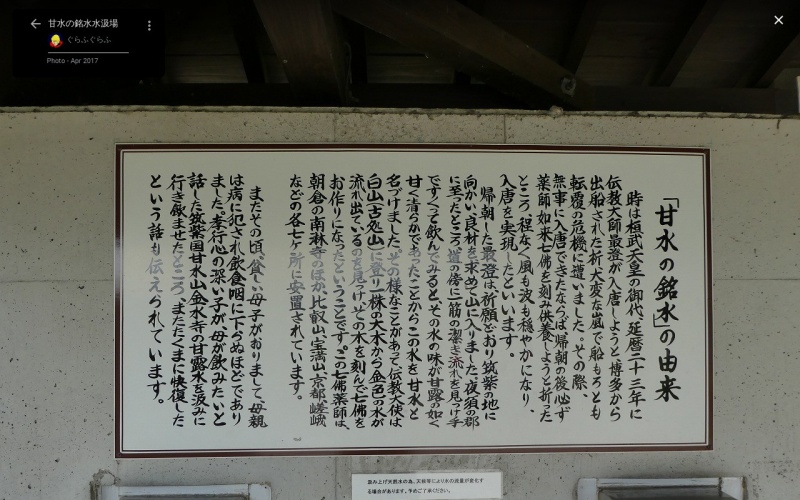 甘水の銘水水汲場
ぐらぶぐらぶ
Photo - Apr 2017
「甘水の銘水」の由来
時は桓武天皇の御代、延暦二十三年に
伝教大師最澄が入唐しようと博多から
出船された折大変な嵐で船もろとも
転覆の危機に遭いました。その際、
無事に入唐できたならば、帰朝の後必ず
薬師如来七佛を刻み供養しようと祈った
ところ、程なく風も波も穏やかになり、
入唐を実現したといいます。
帰朝した最澄は、祈願どおり筑紫の地に
向かい、良材を求めて山に入りました。夜須の郡
に至ったところ、道の傍に一筋の潔き流れを見つけ手
ですくって飲んでみると、その水の味が甘露の如く
甘く清らかであったことからこの水を甘水と
名づけました。その様なことがあって伝教大使は
白山(古処山)に登り一株の大木から金色の水が
流れ出ているのを見つけ、その木を刻んで七佛を
お作りになったということです。この七佛薬師は、
朝倉の南淋寺のほか、比叡山、宝満山、京都嵯峨
などの各七ヶ所に安置されています。
またその頃、貧しい母子がおりまして、母親
は病に犯され飲食咽に下らぬほどであり
ました。孝行心の深い子が母が飲みたいと
話した筑紫国甘水山金水寺の甘露水を汲みに
行き飲ませたところ、またたくまに快復した
という話も伝えられています。
汲み上げ天然水の為、天候等により水の流量が変化す
る場合があります。予めご了承ください。